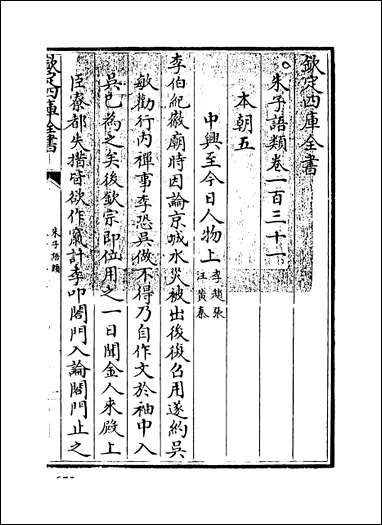 欽定四庫全書
朱子語類卷一百三十一
本朝五
中興至今日人物上李趙張汪黃秦
李伯紀徽廟時因論京城水災被出後復召用遂約吳
敏勸行内禪事李恐吳做不得乃自作文於袖中入
吳已為之矣後欽宗即位用之一日聞金人來殿上
臣寮都失措皆欲作竄計李叩閤門入論閤門止之
欽定四庫全書
朱子語類